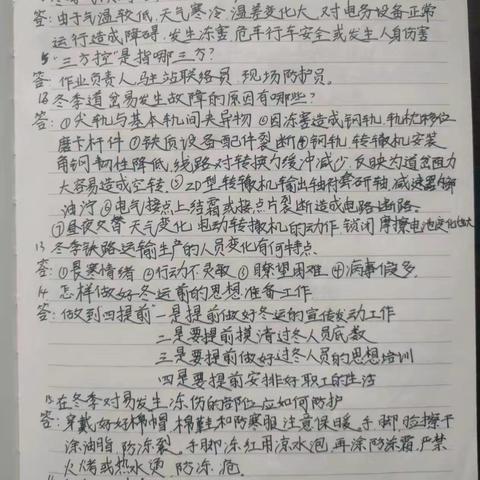 答:由于气温较低,天气寒冷,温差变化大,对电务设备正常
运行造成障碍,发生冻害,危乎行车安全或发生人身伤害
"三方控"是指哪三方?
答:作业负责人,驻站联络员,现场防护员。
冬季道岔易发生故障的原因有哪些?
答:①尖轨与基本轨间夹异物 ②因冻害造成钢轨,轨枕移位
磨卡杆件 ③铁质设备配件裂断④钢轨,转辙机安装
角钢韧性降低,线路对转换力缓冲减少,反映为道岔阻力
大容易造成空转 ⑤ZD型转辙机输出轴衬套研轴,减速器
油泞 ⑥电气接点上结霜或接点片裂断造成电路断路。
⑦昼夜交替,天气变化,电动转辙机的动作,锁闭,摩擦电流变化大
13 冬季铁路运输生产的人员变化有何特点
答:①畏寒情绪 ②行动不灵敏 ③瞭望困难 ④病事假多.
14 怎样做好冬运前的思想准备工作
答:做到四提前一是提前做好冬运的宣传发动工作
二是要提前摸清过冬人员底数
三是要提前做好过冬人员的思想培训
四是要提前安排好职工的生活
15在冬季对易发生冻伤的部位应如何防护
答:穿戴好棉帽,棉鞋和防寒服,注意保暖,手脚脸擦干
涂油脂,防冻裂,手脚冻红用凉水泡,再涂防冻霜,严禁
火烤或热水烫,防冻危.